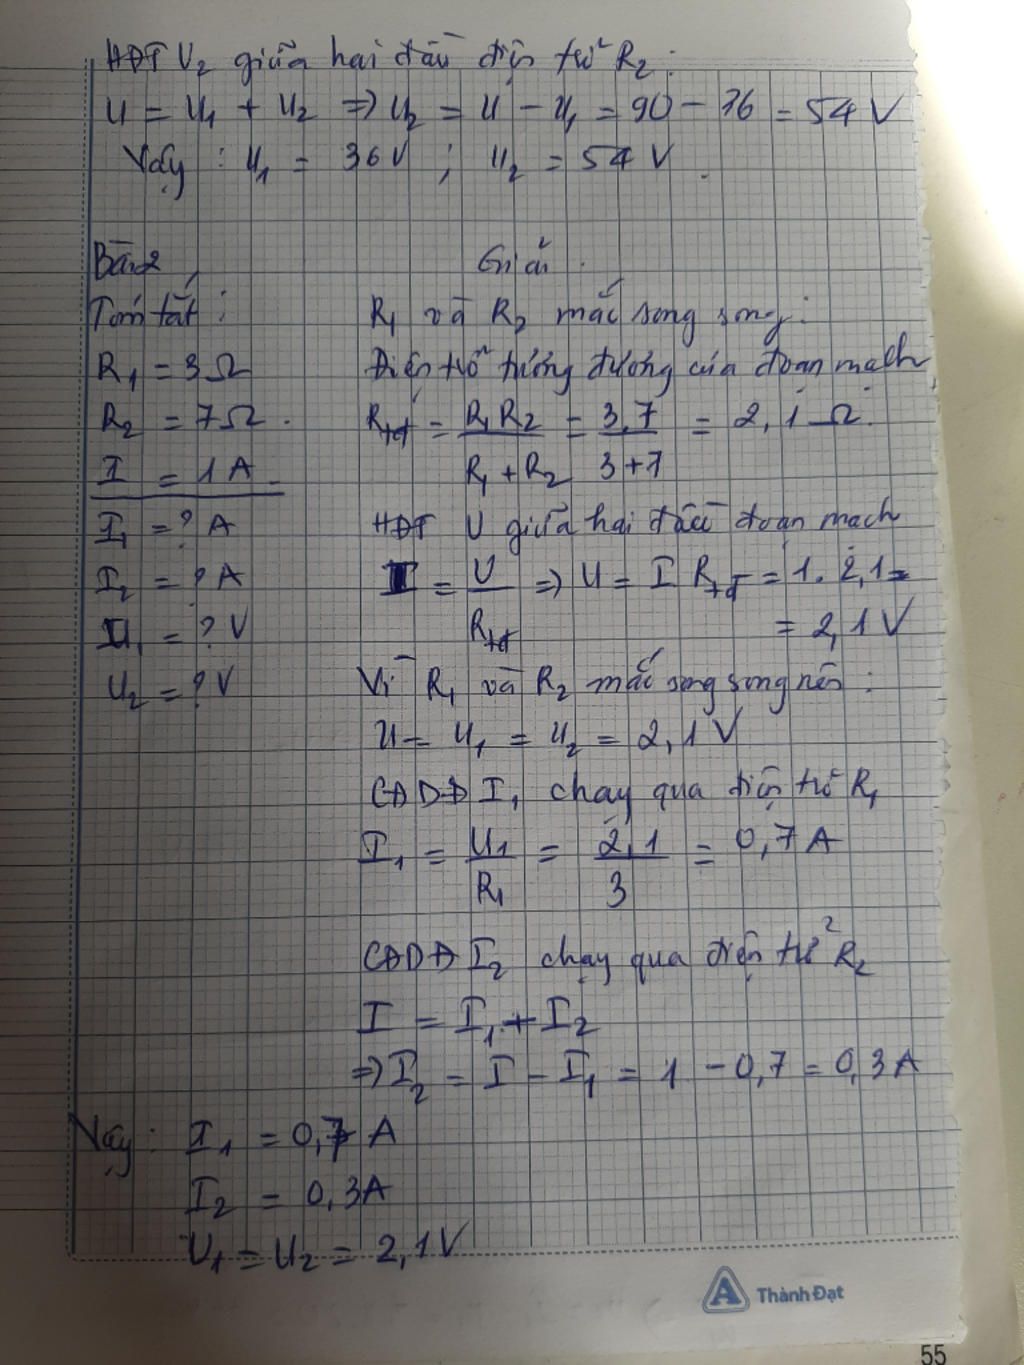 HĐT U₂ giữa hai đầu điện trở R₂ :
U = U₁ + U₂ => U₂ = U - U₁ = 90 - 36 = 54 V
Vậy : U₁ = 36V ; U₂ = 54 V.
Bài 2
Giải.
Tóm tắt :
R₁ và R₂ mắc song song :
R₁ = 3Ω
Điện trở tương đương của đoạn mạch
R₂ = 7Ω.
Rtđ = R₁R₂ / R₁+R₂ = 3.7 / 3+7 = 2,1 Ω.
I = 1A.
I₁ = ? A
HĐT U giữa hai đầu đoạn mạch
I₂ = ? A
I = U / Rtđ => U = I Rtđ = 1. 2,1 =
U₁ = ? V
= 2,1 V
U₂ = ? V
Vì R₁ và R₂ mắc song song nên :
U = U₁ = U₂ = 2,1 V
CĐDĐ I₁ chạy qua điện trở R₁
I₁ = U₁ / R₁ = 2,1 / 3 = 0,7 A
CĐDĐ I₂ chạy qua điện trở R₂
I = I₁ + I₂
=> I₂ = I - I₁ = 1 - 0,7 = 0,3 A
Vậy : I₁ = 0,7 A
I₂ = 0,3A
U₁ = U₂ = 2,1 V
Thành Đạt
55